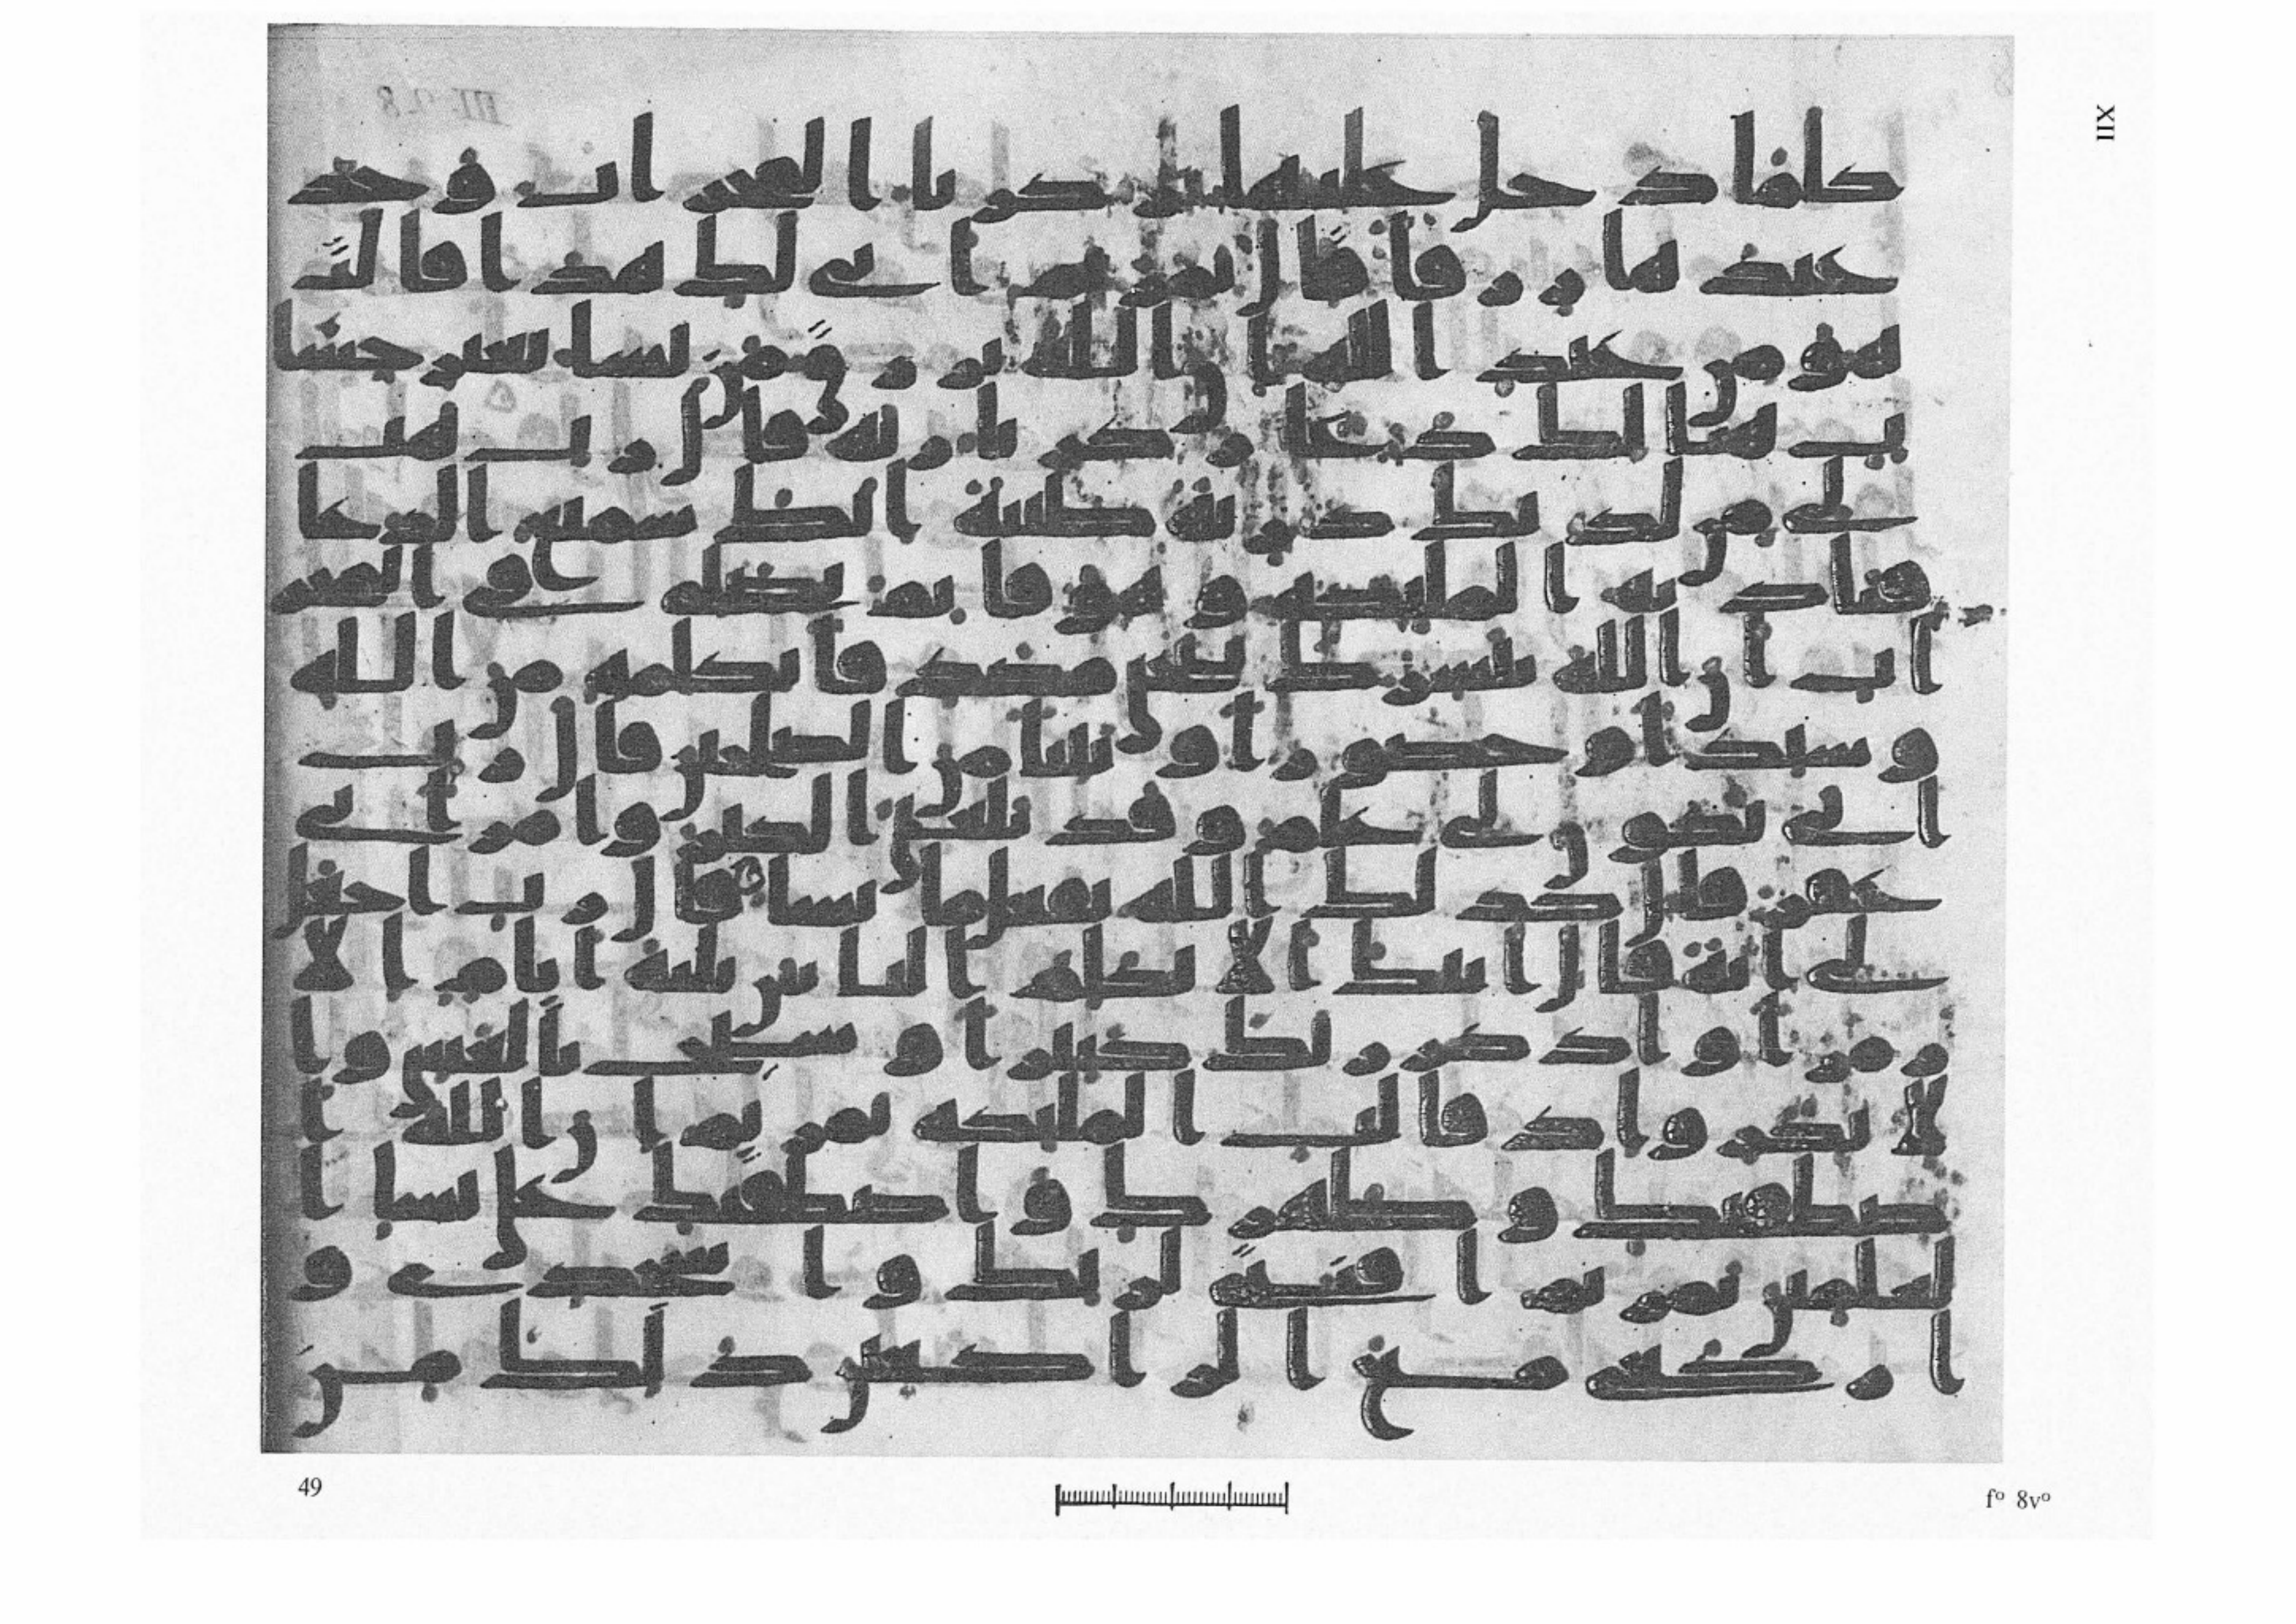 XII
كلما دخل عليها زكريا المحراب وجد
عندها رزقا قال يمريم انى لك هذا قالت
هو من عند الله ان الله يرزق من يشا بغير حسا
ب هنالك دعا زكريا ربه قال رب هب
لى من لدنك ذرية طيبة انك سميع الدعا
فنادته الملئكة وهو قايم يصلى فى المحر
اب ان الله يبشرك بيحيى مصدقا بكلمة من الله
وسيدا وحصورا ونبيا من الصلحين قال رب
انى يكون لى غلم وقد بلغنى الكبر وامراتى
عقر قال كذلك الله يفعل ما يشا قال رب اجعل
لى اية قال ايتك الا تكلم الناس ثلثة ايام الا
رمزا واذكر ربك كثيرا وسبح بالعشى وا
لابكر واذ قالت الملئكة يمريم ان الله ا
صطفيك وطهرك واصطفيك على نسا ا
لعلمين يمريم اقنتى لربك واسجدى و
اركعى مع الركعين ذلك من
49
fº 8vº